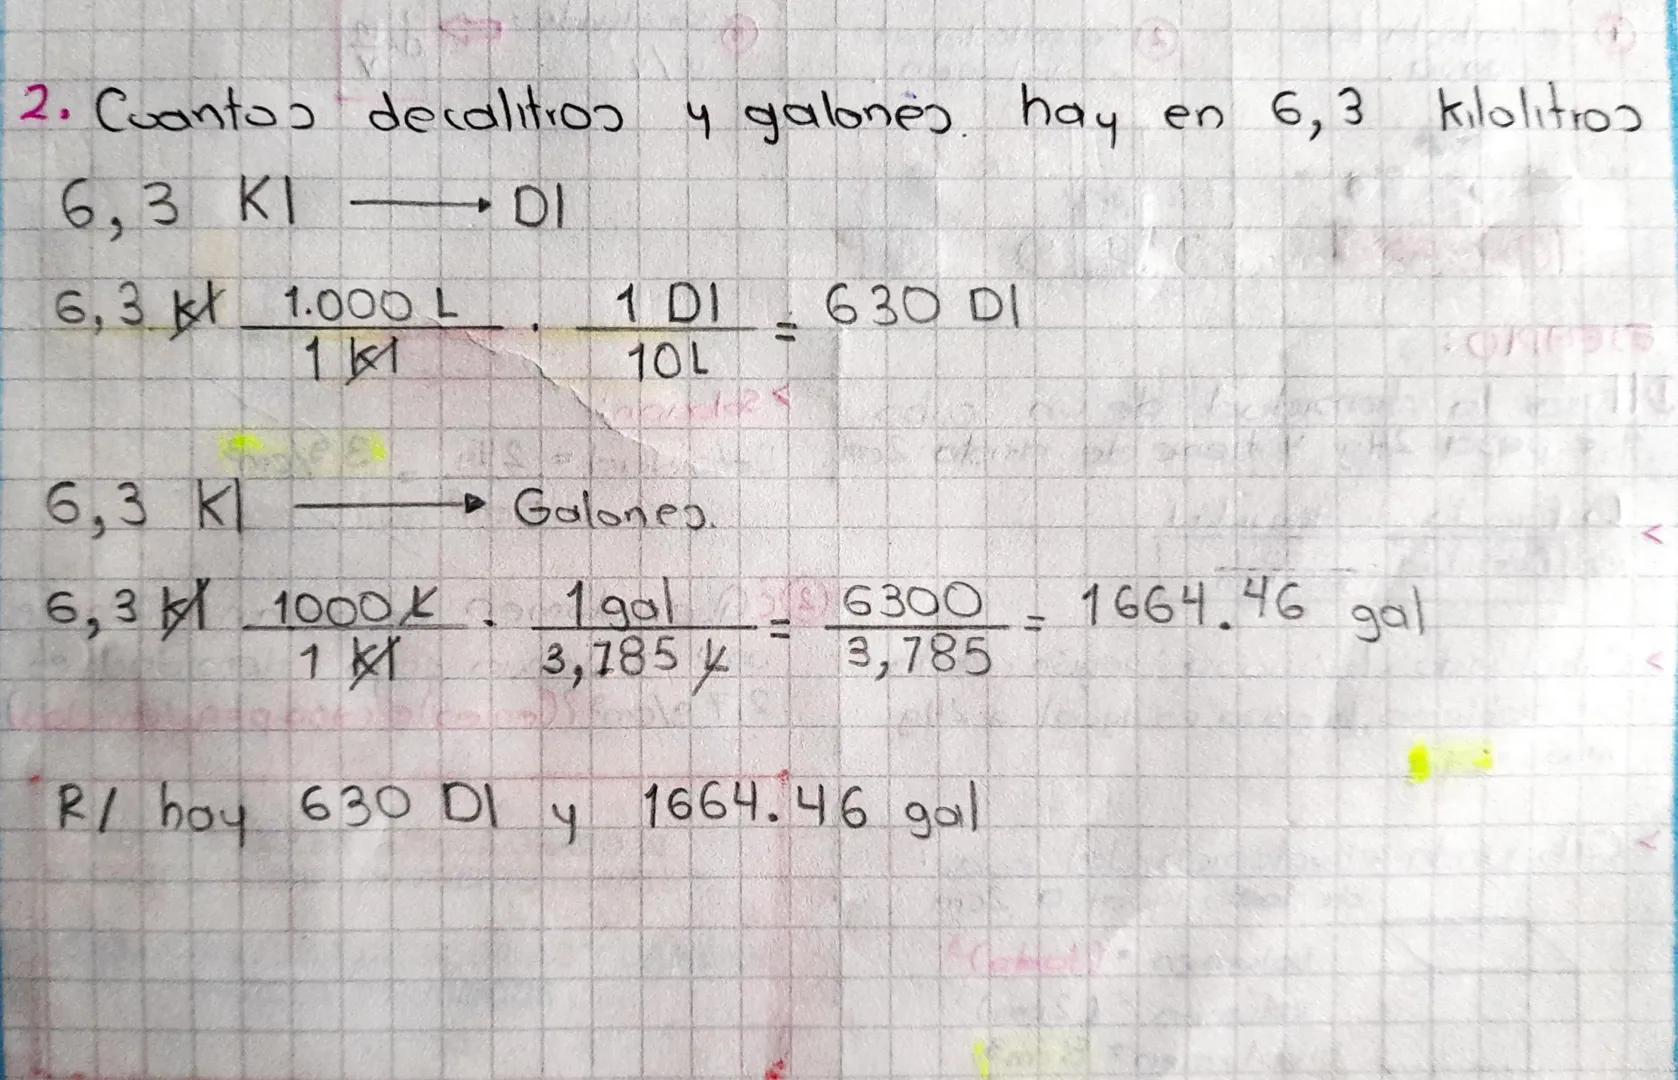 2. Cuantos decalitros y galones. hay en 6,3 kilolitros
6,3 Kl → Dl
6,3 kl 1.000 L / 1 kl · 1 Dl / 10L = 630 Dl
6,3 Kl → Galones.
6,3 kl 1000 L / 1 kl · 1 gal / 3,785 L = 6300 / 3,785 = 1664.46 gal
R/ hay 630 Dl y 1664.46 gal